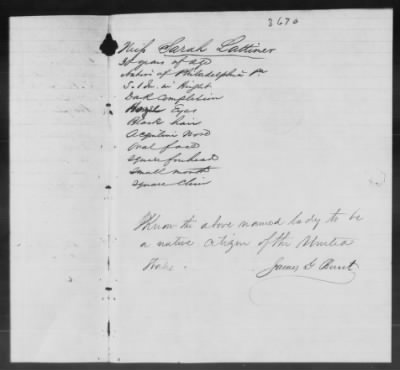 3670
Miss Sarah Lattimer
34 years of age
Native of Philadelphia Pa
5 ft In. in Hight
Dark Complexion
Hazel Eyes
Black hair
Acquiline Nose
Oval face
Square forehead
Small mouth
Square Chin
I Know the above named lady to be
a native citizen of the United
States.
James